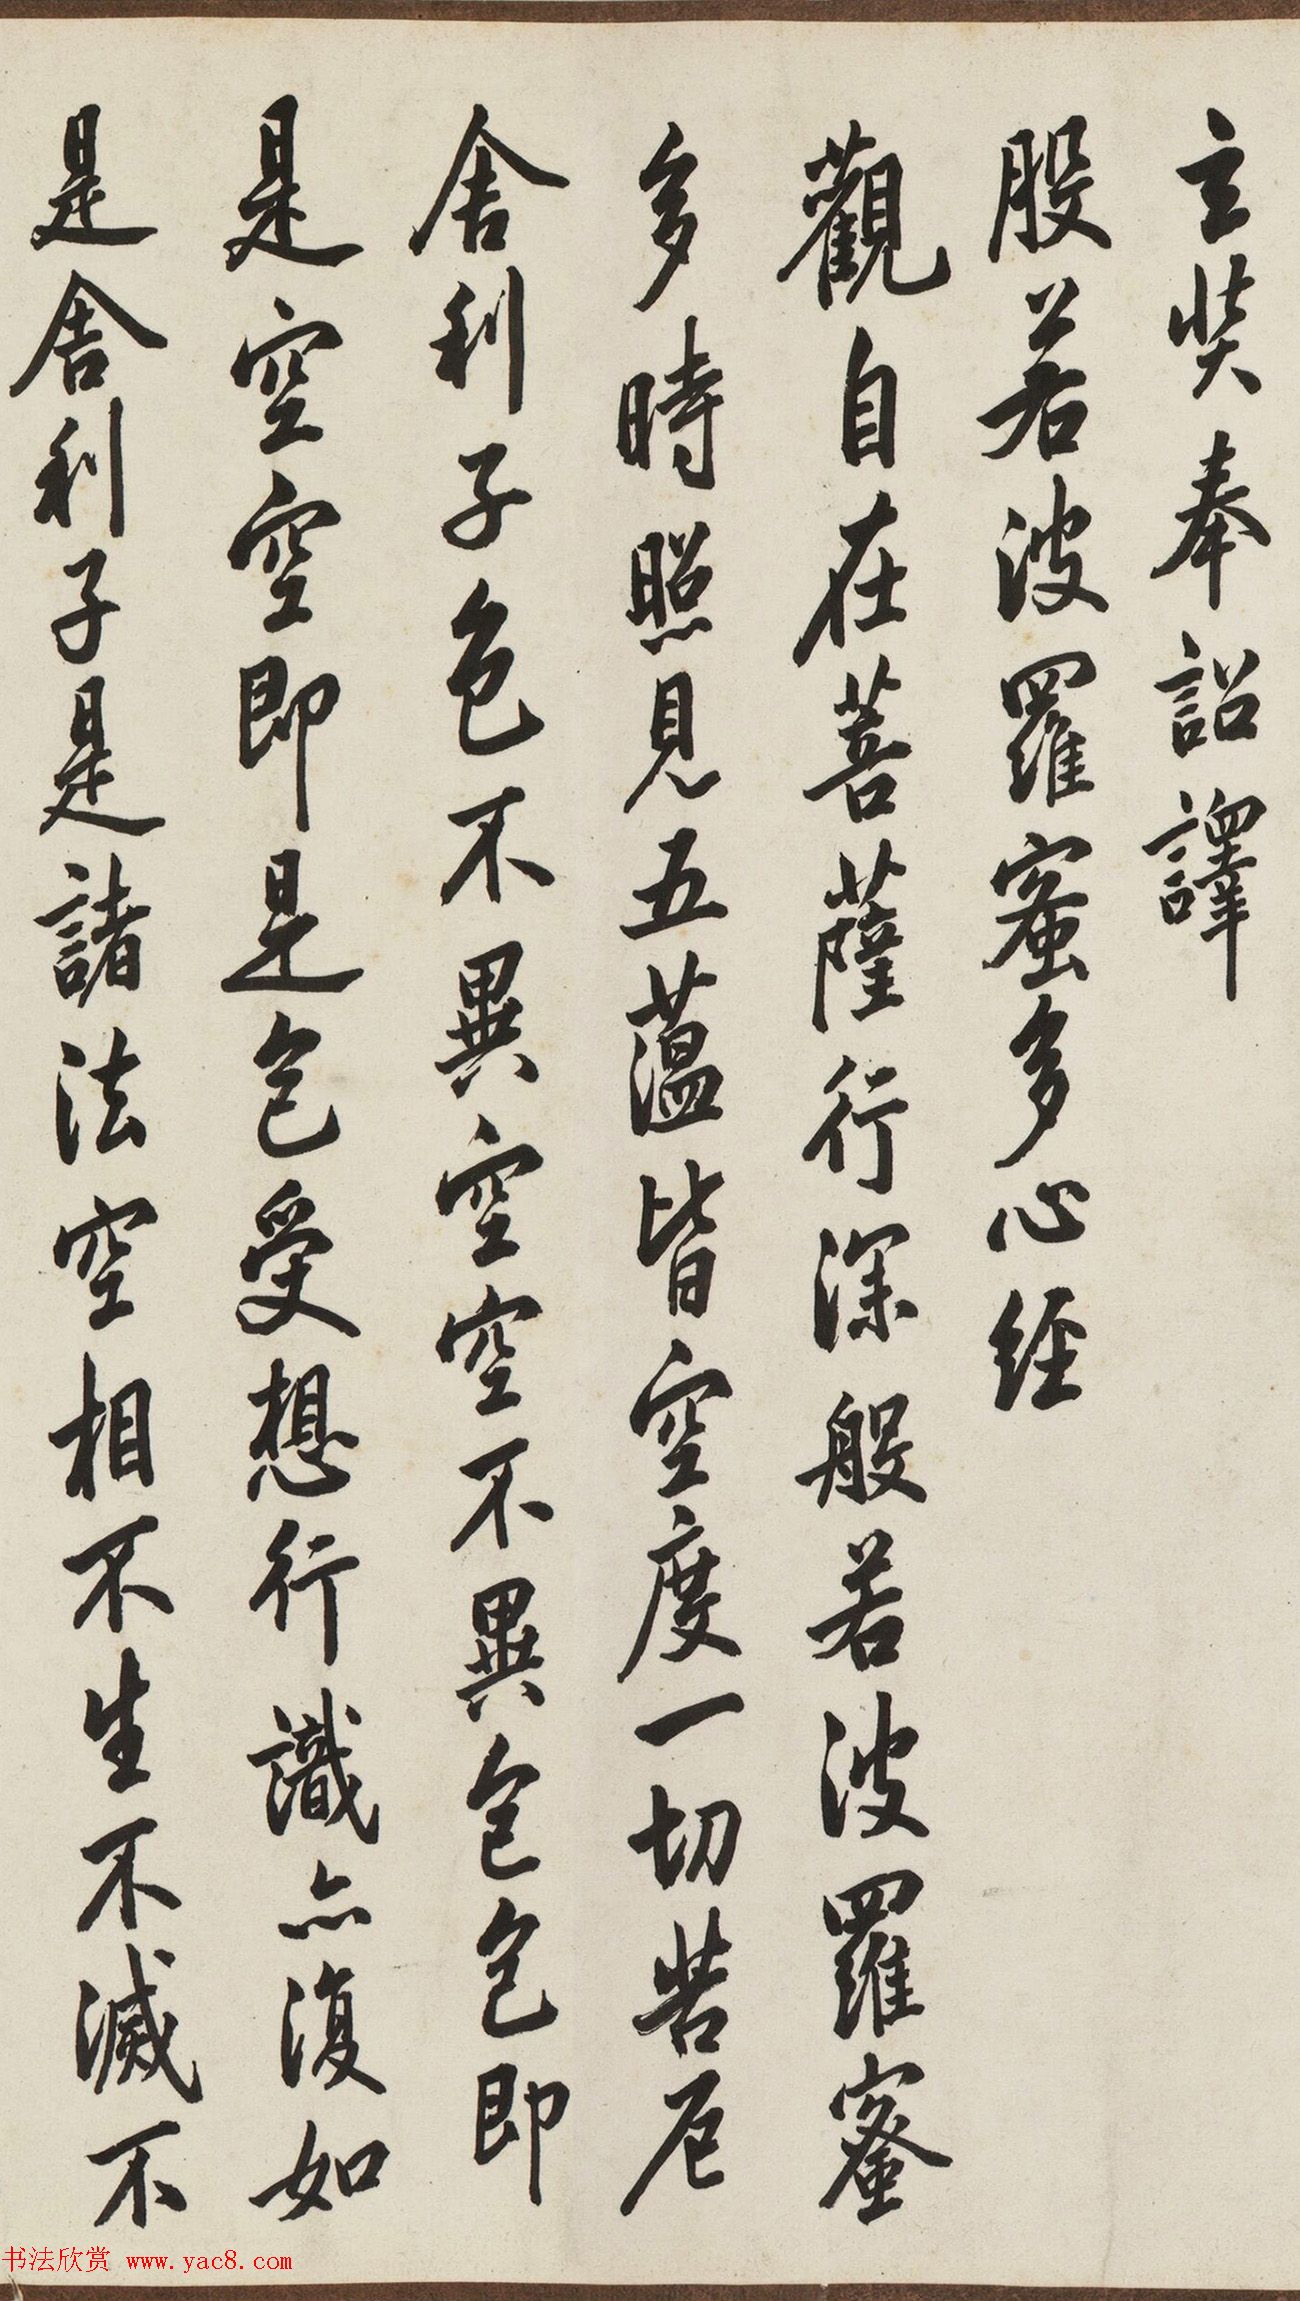 玄奘奉詔譯
般若波羅蜜多心經
觀自在菩薩行深般若波羅蜜
多時照見五蘊皆空度一切苦厄
舍利子色不異空空不異色色即
是空空即是色受想行識亦復如
是舍利子是諸法空相不生不滅不
书法欣赏 www.yac8.com